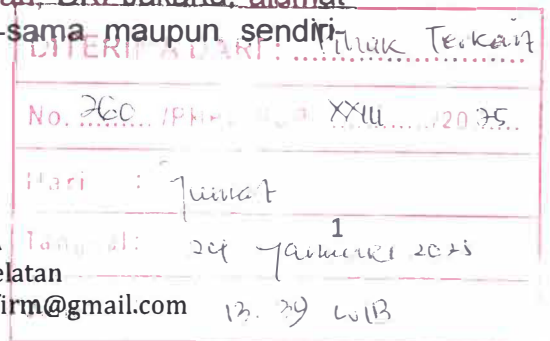 DKI Jakarta, alamat
-sama maupun sendiri-
DITERIMA DARI : Pihak Terkait
No. 260 /PH XXIII /2025
Hari : Jumat
1
Tanggal: 24 Januari 2025
elatan
firm@gmail.com 13.39 WIB